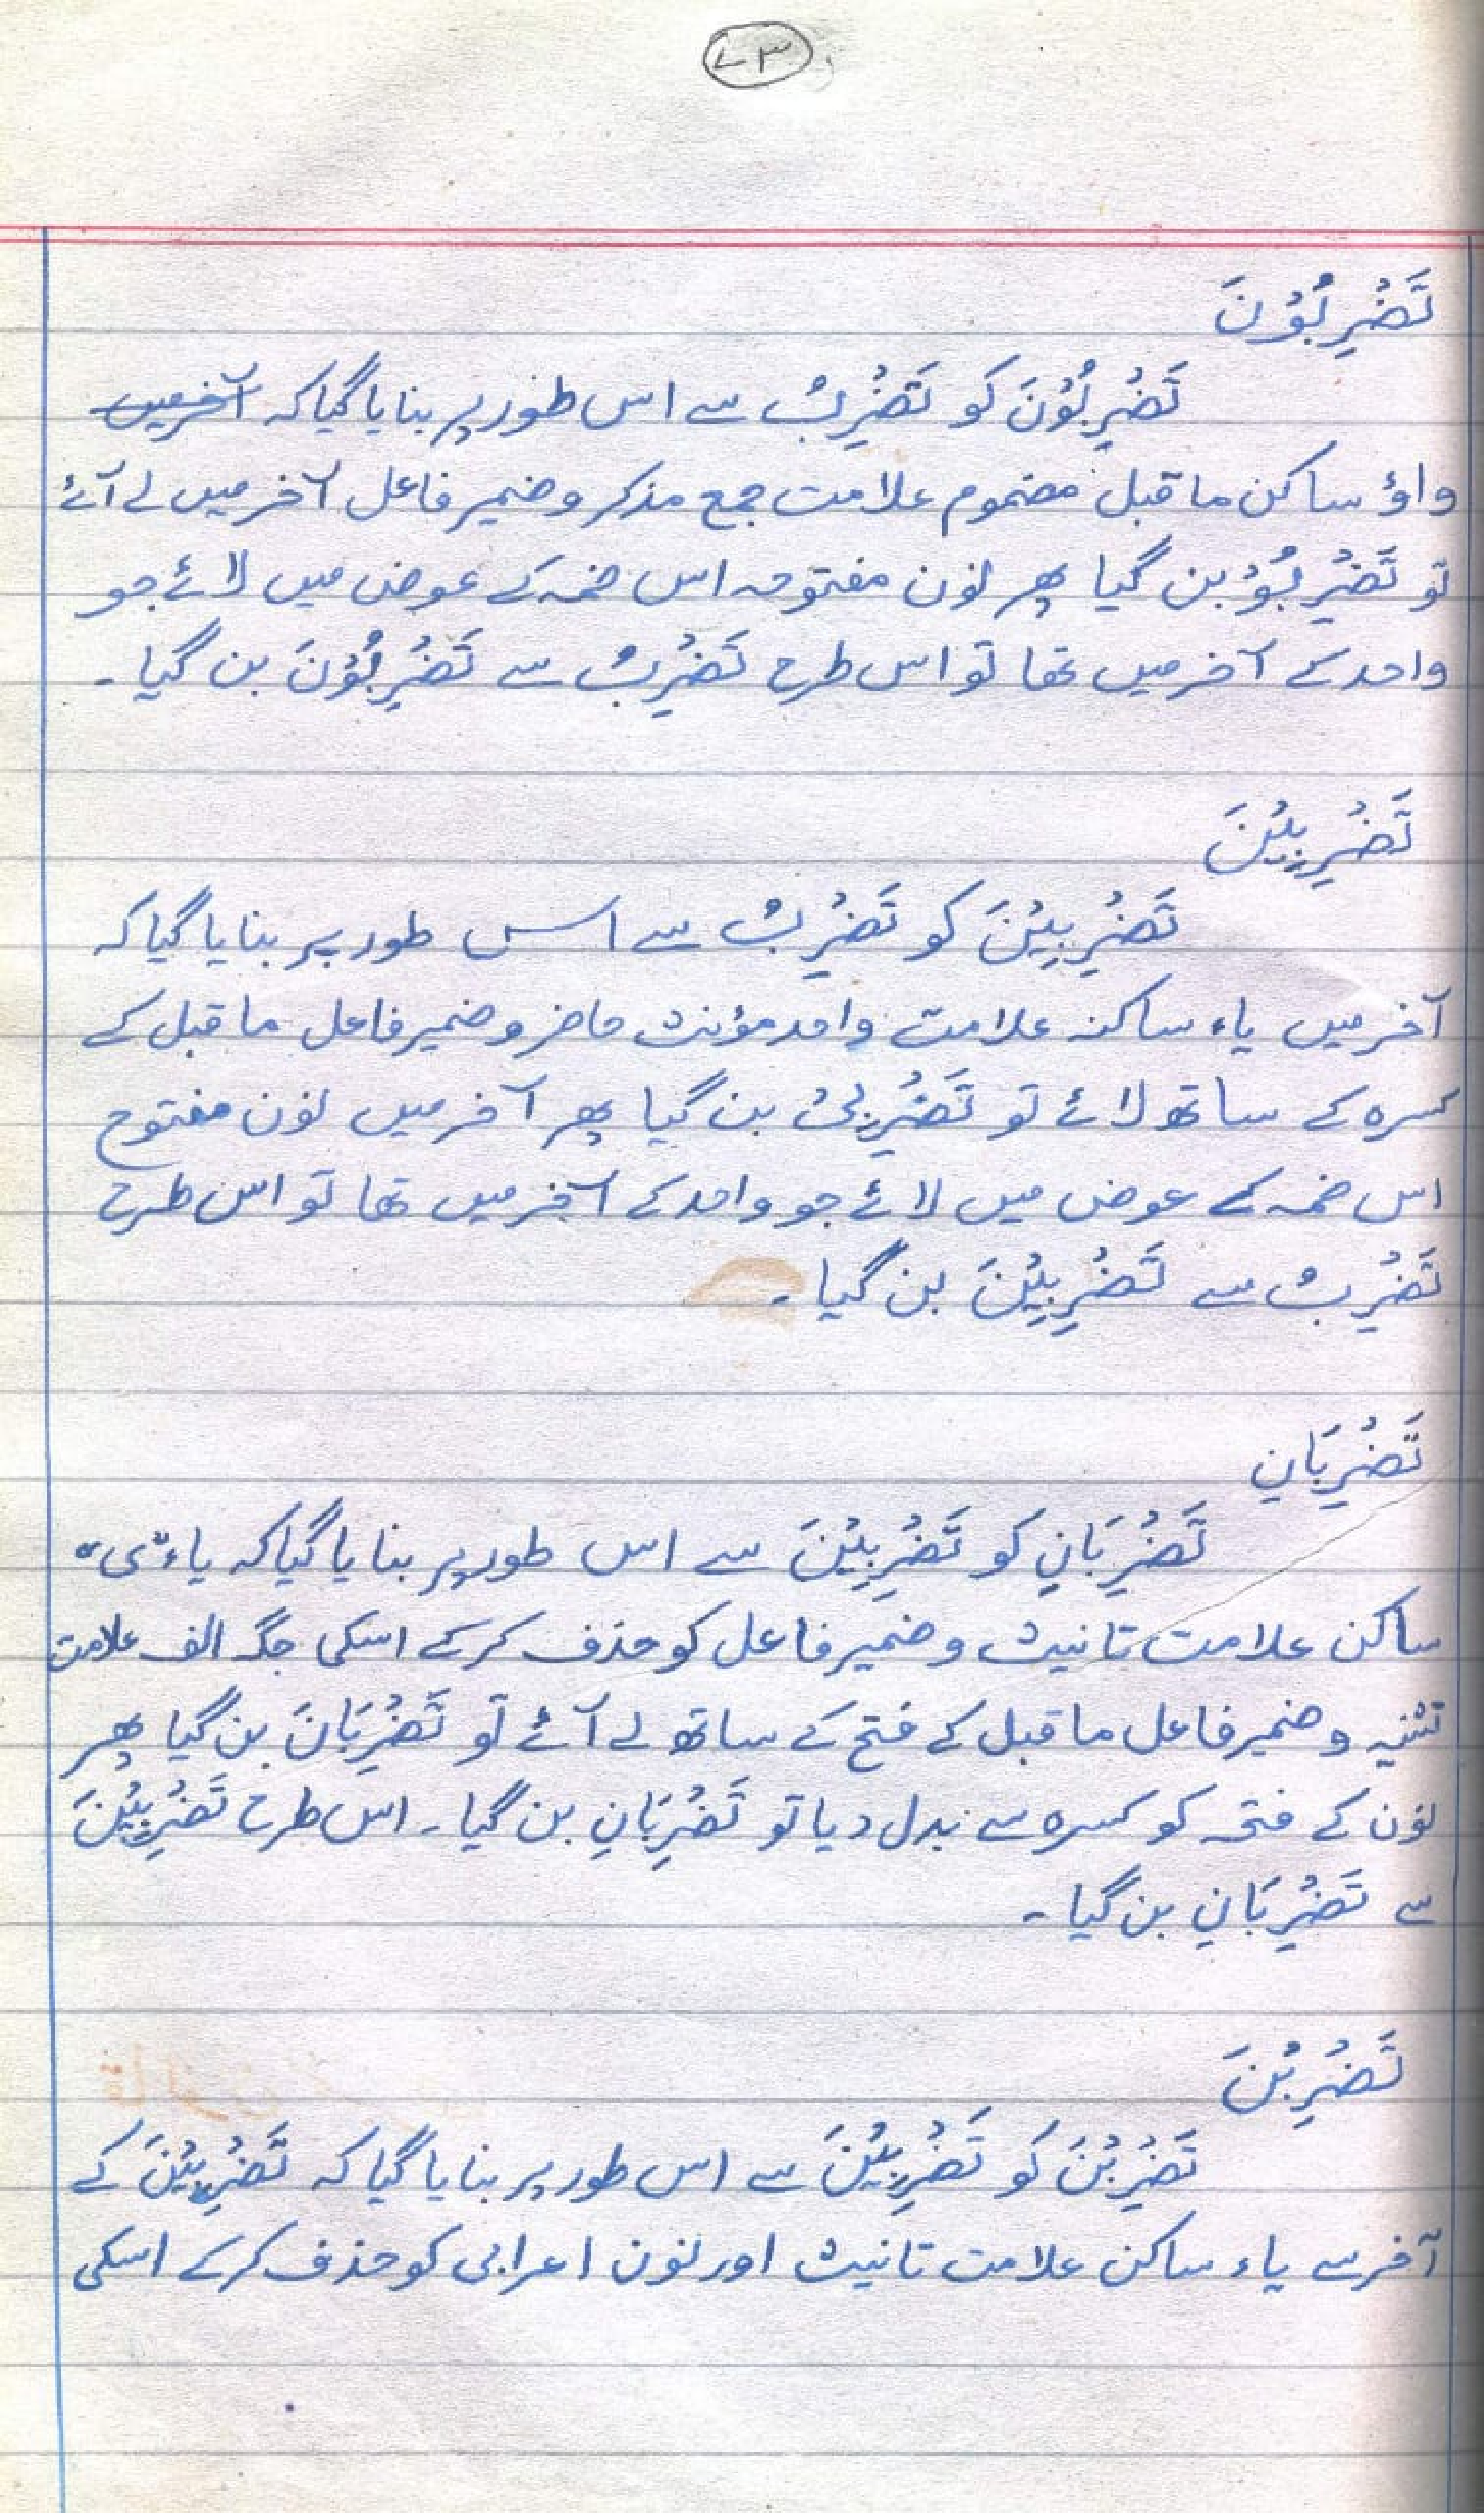 ۷۳
تَضْرِبُوْنَ
تَضْرِبُوْنَ کو تَضْرِبُ سے اس طور پر بنایا گیا کہ آخر میں
واؤ ساکن ما قبل مضموم علامت جمع مذکر و ضمیر فاعل آخر میں لے آئے
تو تَضْرِبُوْ بن گیا پھر نون مفتوحہ اس ضمہ کے عوض میں لائے جو
واحد کے آخر میں تھا تو اس طرح تَضْرِبُ سے تَضْرِبُوْنَ بن گیا۔
تَضْرِبِیْنَ
تَضْرِبِیْنَ کو تَضْرِبُ سے اس طور پر بنایا گیا کہ
آخر میں یاء ساکنہ علامت واحد مؤنث حاضر و ضمیر فاعل ما قبل کے
کسرہ کے ساتھ لائے تو تَضْرِبِیْ بن گیا پھر آخر میں نون مفتوح
اس ضمہ کے عوض میں لائے جو واحد کے آخر میں تھا تو اس طرح
تَضْرِبُ سے تَضْرِبِیْنَ بن گیا۔
تَضْرِبَانِ
تَضْرِبَانِ کو تَضْرِبِیْنَ سے اس طور پر بنایا گیا کہ یاء "ی"
ساکن علامت تانیث و ضمیر فاعل کو حذف کرکے اسکی جگہ الف علامت
تثنیہ و ضمیر فاعل ما قبل کے فتح کے ساتھ لے آئے تو تَضْرِبَانَ بن گیا پھر
نون کے فتحہ کو کسرہ سے بدل دیا تو تَضْرِبَانِ بن گیا۔ اس طرح تَضْرِبِیْنَ
سے تَضْرِبَانِ بن گیا۔
تَضْرِبْنَ
تَضْرِبْنَ کو تَضْرِبِیْنَ سے اس طور پر بنایا گیا کہ تَضْرِبِیْنَ کے
آخر سے یاء ساکن علامت تانیث اور نون اعرابی کو حذف کرکے اسکی